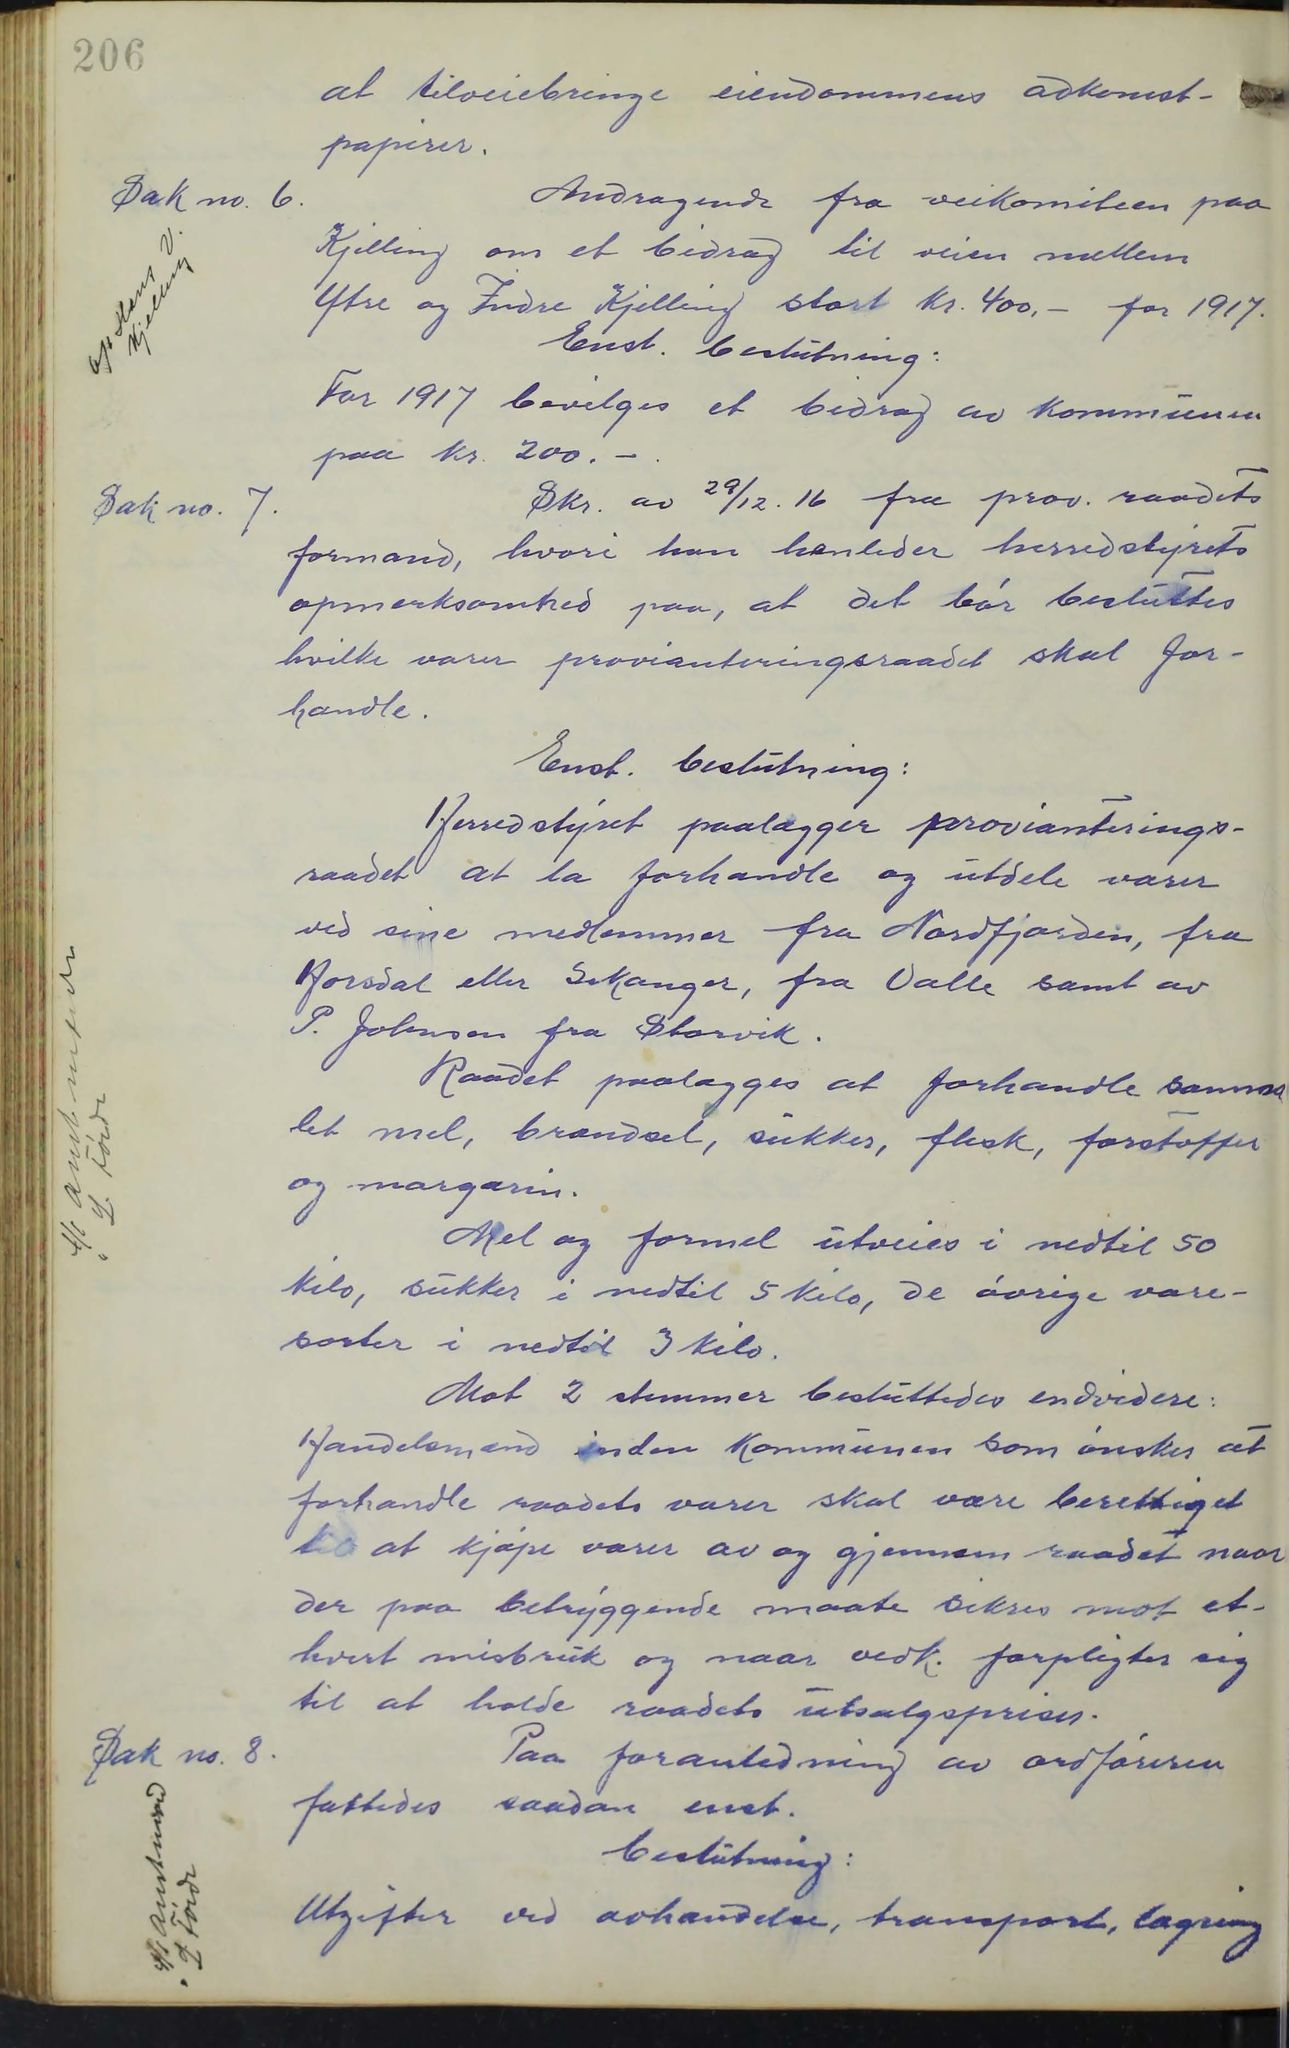 206
at tilveiebringe eiendommens adkomst-
papirer.
Sak no. 6.
Andragende fra veikomiteen paa
Kjelling om et bidrag til veien mellem
Ytre og Indre Kjelling stort kr. 400,- for 1917.
Enst. beslutning:
For 1917 bevilges et bidrag av kommunen
paa kr. 200.-.
Sak no. 7.
Skr. av 29/12. 16 fra prov. raadets
formand, hvori han henleder herredstyrets
opmerksomhed paa, at det bør besluttes
hvilke varer provianteringsraadet skal for-
handle.
Enst. beslutning:
Herredstyret paalægger provianterings-
raadet at la forhandle og utdele varer
ved sine medlemmer fra Nordfjorden, fra
Horsdal eller Sekanger, fra Valle samt av
P. Johnsen fra Storvik.
Raadet paalægges at forhandle samma
let mel, brændsel, sukker, flesk, forstoffer
og margarin.
Mel og formel utveies i nedtil 50
kilo, sukker i nedtil 5 kilo, de øvrige vare-
sorter i nedtil 3 kilo.
Mot 2 stemmer besluttedes endvidere:
Handelsmænd inden kommunen som ønsker at
forhandle raadets varer skal være berettiget
til at kjøpe varer av og gjennem raadet naar
der paa betryggende maate sikres mot et-
hvert misbruk og naar vedk. forpligter sig
til at holde raadets utsalgspriser.
Sak no. 8.
Paa foranledning av ordføreren
fattedes saadan enst.
beslutning:
Utgifter ved avhændelse, transport, lagring
Hans V.
Kjelling
I Förde
I Förde